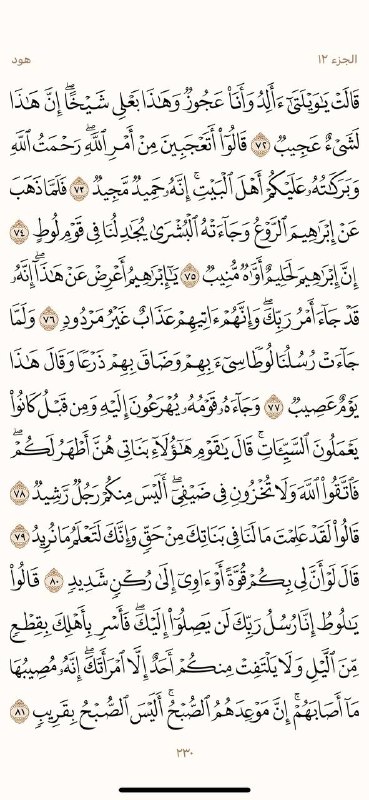 الجزء ١٢ هود
قَالَتْ يَـٰوَيْلَتَىٰٓ ءَأَلِدُ وَأَنَا۠ عَجُوزٌ وَهَـٰذَا بَعْلِى شَيْخًا ۖ إِنَّ هَـٰذَا
لَشَىْءٌ عَجِيبٌ ٧٢ قَالُوٓا۟ أَتَعْجَبِينَ مِنْ أَمْرِ ٱللَّهِ ۖ رَحْمَتُ ٱللَّهِ
وَبَرَكَـٰتُهُۥ عَلَيْكُمْ أَهْلَ ٱلْبَيْتِ ۚ إِنَّهُۥ حَمِيدٌ مَّجِيدٌ ٧٣ فَلَمَّا ذَهَبَ
عَنْ إِبْرَٰهِيمَ ٱلرَّوْعُ وَجَآءَتْهُ ٱلْبُشْرَىٰ يُجَـٰدِلُنَا فِى قَوْمِ لُوطٍ ٧٤
إِنَّ إِبْرَٰهِيمَ لَحَلِيمٌ أَوَّٰهٌ مُّنِيبٌ ٧٥ يَـٰٓإِبْرَٰهِيمُ أَعْرِضْ عَنْ هَـٰذَآ ۖ إِنَّهُۥ
قَدْ جَآءَ أَمْرُ رَبِّكَ ۖ وَإِنَّهُمْ ءَاتِيهِمْ عَذَابٌ غَيْرُ مَرْدُودٍ ٧٦ وَلَمَّا
جَآءَتْ رُسُلُنَا لُوطًا سِىٓءَ بِهِمْ وَضَاقَ بِهِمْ ذَرْعًا وَقَالَ هَـٰذَا
يَوْمٌ عَصِيبٌ ٧٧ وَجَآءَهُۥ قَوْمُهُۥ يُهْرَعُونَ إِلَيْهِ وَمِن قَبْلُ كَانُوا۟
يَعْمَلُونَ ٱلسَّيِّـَٔاتِ ۚ قَالَ يَـٰقَوْمِ هَـٰٓؤُلَآءِ بَنَاتِى هُنَّ أَطْهَرُ لَكُمْ ۖ
فَٱتَّقُوا۟ ٱللَّهَ وَلَا تُخْزُونِ فِى ضَيْفِىٓ ۖ أَلَيْسَ مِنكُمْ رَجُلٌ رَّشِيدٌ ٧٨
قَالُوا۟ لَقَدْ عَلِمْتَ مَا لَنَا فِى بَنَاتِكَ مِنْ حَقٍّ وَإِنَّكَ لَتَعْلَمُ مَا نُرِيدُ ٧٩
قَالَ لَوْ أَنَّ لِى بِكُمْ قُوَّةً أَوْ ءَاوِىٓ إِلَىٰ رُكْنٍ شَدِيدٍ ٨٠ قَالُوا۟
يَـٰلُوطُ إِنَّا رُسُلُ رَبِّكَ لَن يَصِلُوٓا۟ إِلَيْكَ ۖ فَأَسْرِ بِأَهْلِكَ بِقِطْعٍ
مِّنَ ٱلَّيْلِ وَلَا يَلْتَفِتْ مِنكُمْ أَحَدٌ إِلَّا ٱمْرَأَتَكَ ۖ إِنَّهُۥ مُصِيبُهَا
مَآ أَصَابَهُمْ ۚ إِنَّ مَوْعِدَهُمُ ٱلصُّبْحُ ۚ أَلَيْسَ ٱلصُّبْحُ بِقَرِيبٍ ٨١
٢٣٠